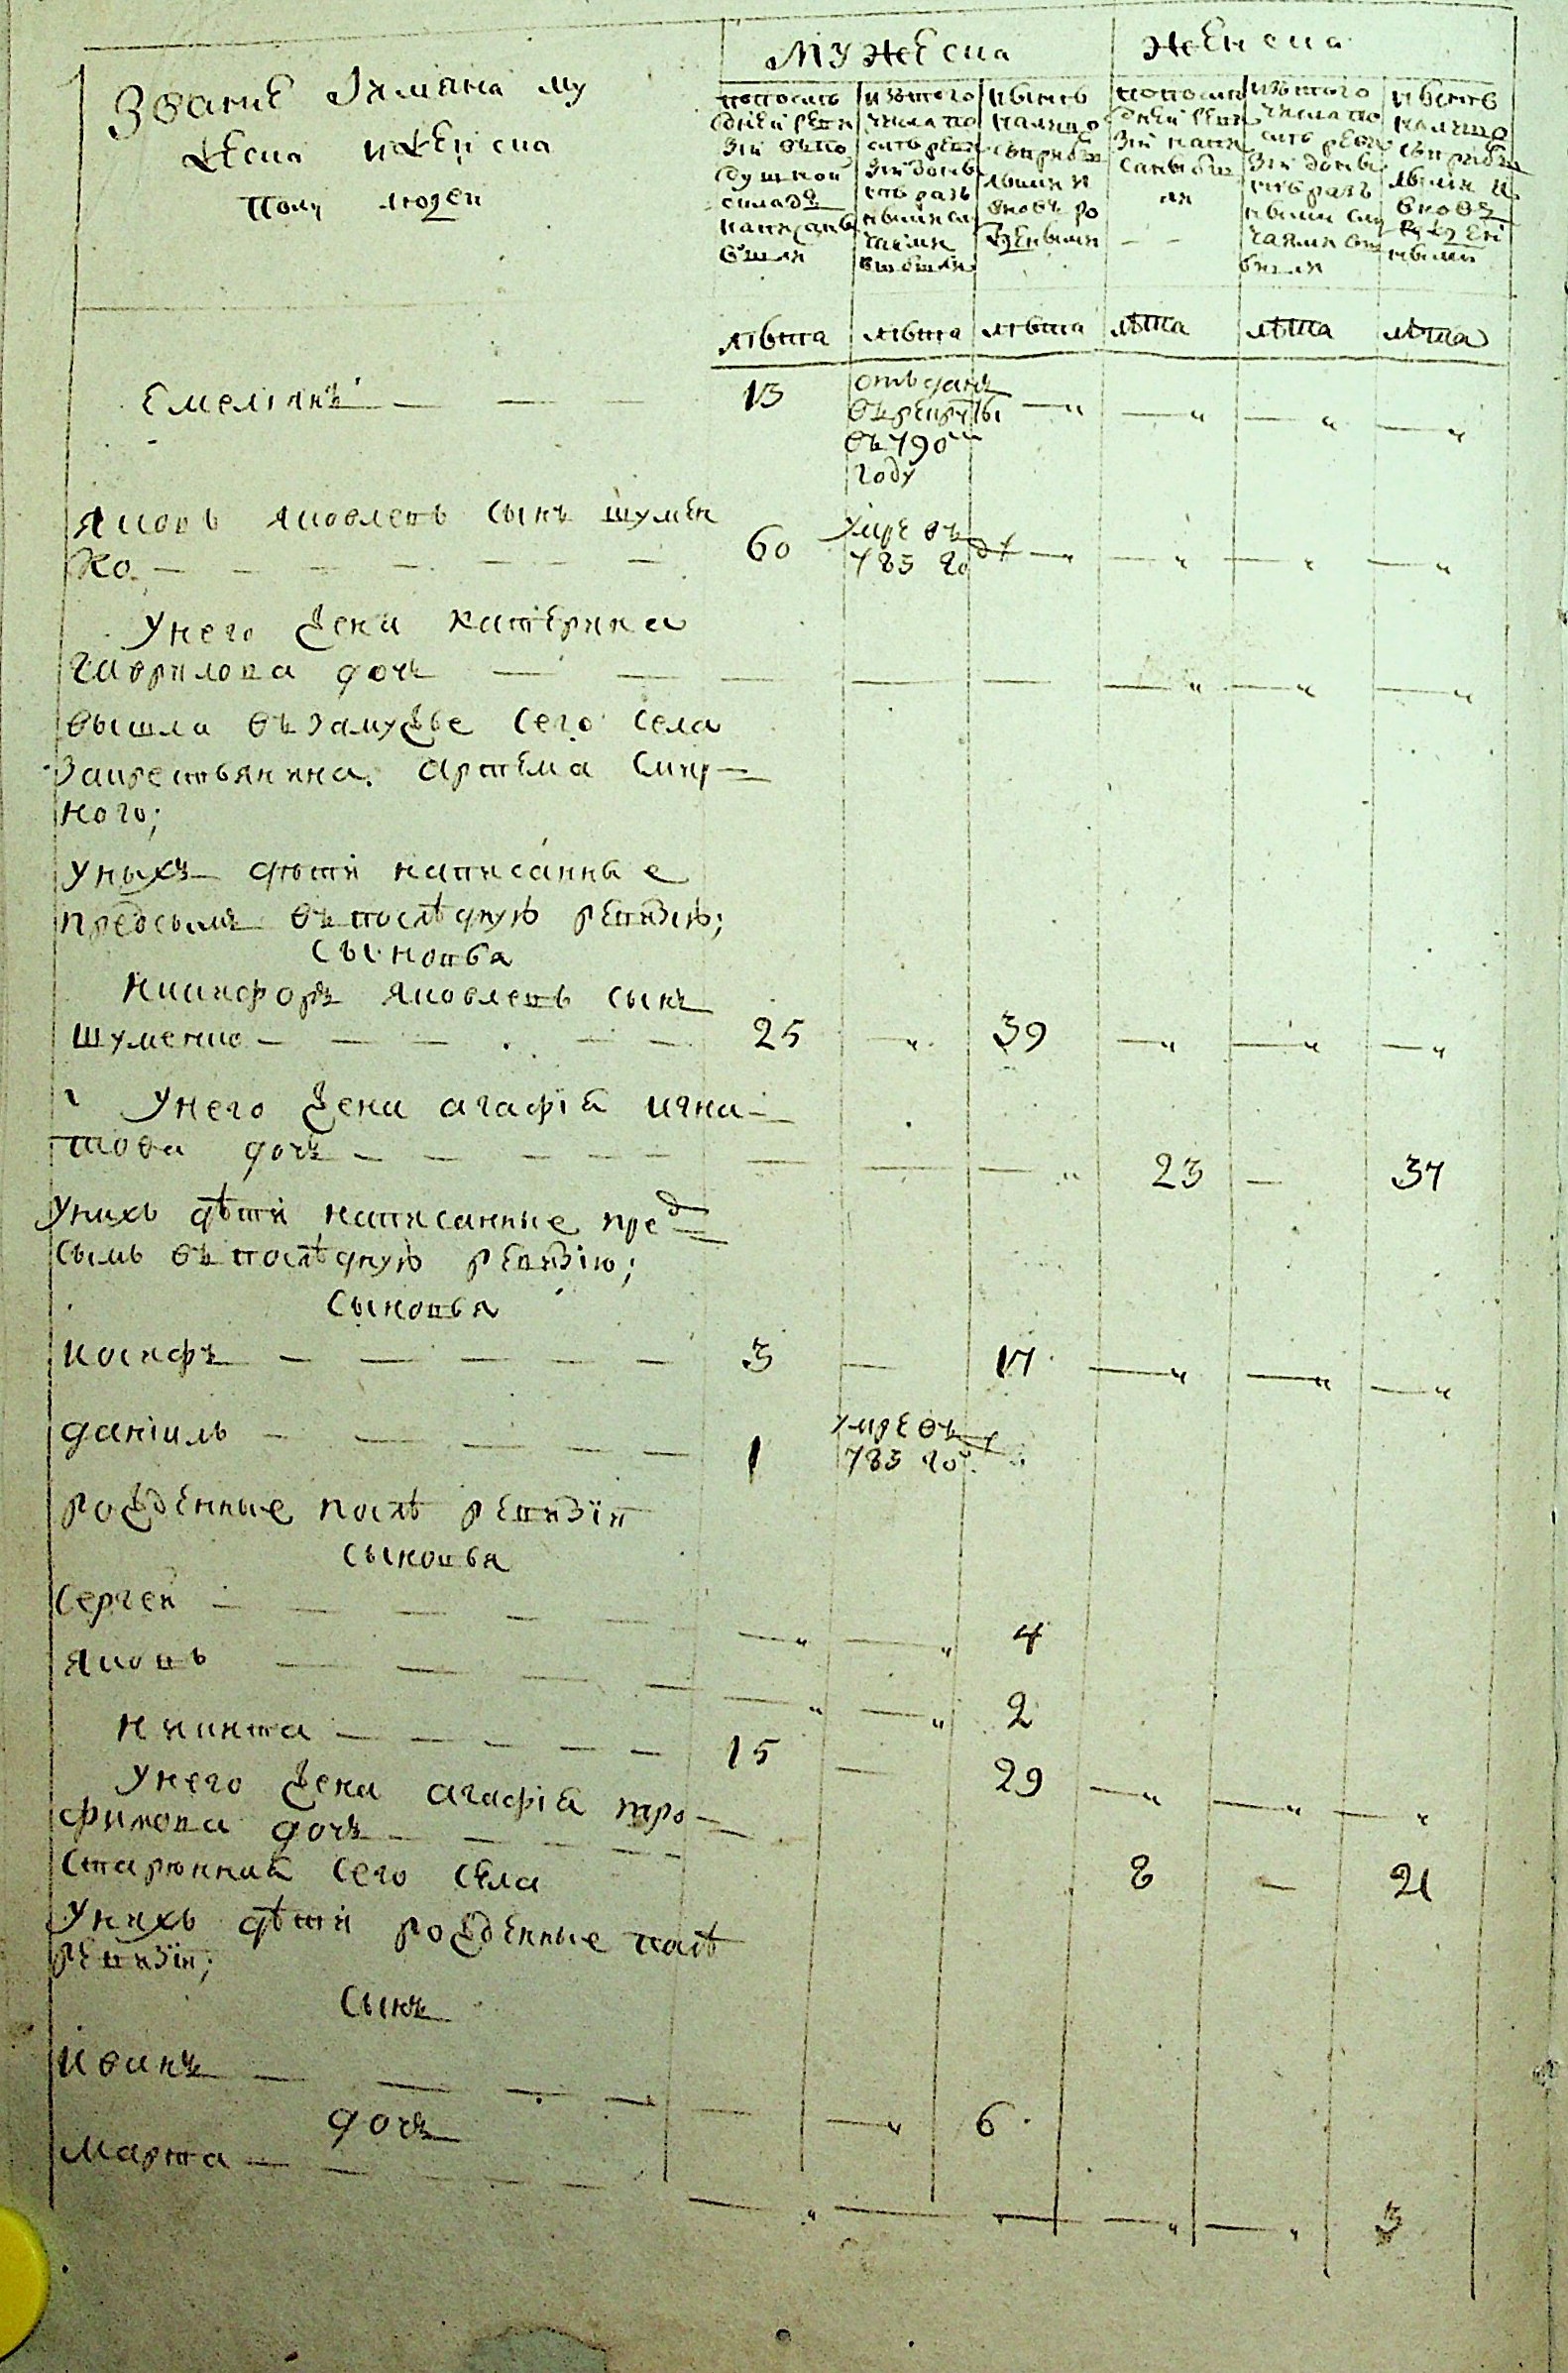 Мужеска Женска
Званіе Имяна му
жеска и женска
полу людей
попослѣдней ревизіи въ подушной окладъ написаны были
изъ того числа по сить ревизіи до нынѣ разными случаями выбыли
и нынѣ налицо съ прибылыми и вновь рожденными
попослѣдней ревизіи написаны были
изъ того числа по сить ревизіи до нынѣ разными случаями выбыли
и нынѣ налицо съ прибылыми и вновь рожденными
лѣта лѣта лѣта лѣта лѣта лѣта
Емеліянъ — — — 13 отъданъ въ рекруты въ 790 м году — „ — „ — „ — „
Яковъ Яковлевъ сынъ шумен
ко — — — — — — 60 умре въ 785 году — „ — „ — „ — „
Унего жена Катерина
Гаврилова дочь — — — — — — „ — „ — „
вышла въ замужье сего села
за крестьянина Артема Смир
ного;
Уныхъ дѣти написанные
предсымъ въ послѣдную ревизію;
Сыновья
Никифоръ Яковлевъ сынъ
шуменко — — — — — 25 — „ 39 — „ — „ — „
Унего жена агафія игна
това дочь — — — — — — — — „ 23 — 37
Унихъ дѣти написанные пред
сымъ въ послѣдную ревизію;
Сыновья
Иосифъ — — — — — 3 — 17 — „ — „ — „
даніилъ — — — — — 1 умре въ 783 году
рожденные послѣ ревизіи
Сыновья
Сергей — — — — — — „ — „ 4
Яковъ — — — — — „ — „ 2
Никита — — — — — 15 — 29 — „ — „ — „
Унего жена агафія тро
фимова дочь — — — — —
Старинная сего села 8 — 21
Унихъ дѣти рожденные послѣ
ревизіи;
Сынъ
Иванъ — — — — — — „ 6
дочь
Марта — — — — — „ — — — „ — „ 3